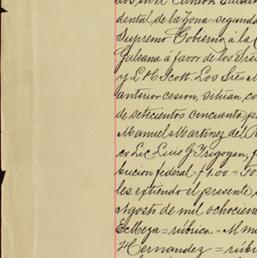 dental, de la zona segund
Supremo Gobierno, á la C
Galeana á favor de los Sres
y L. H. Scott. Los
anterior cesion, sitúan, co
de setecientos cincuenta p
Manuel Martinez del R
co Lic. Luis G. Yrigoyen, f
bucion federal = 1.00 = To
les extiendo el presente
Agosto de mil ochocien
E. Meza = rúbrica = M
Hernandez = rúbr